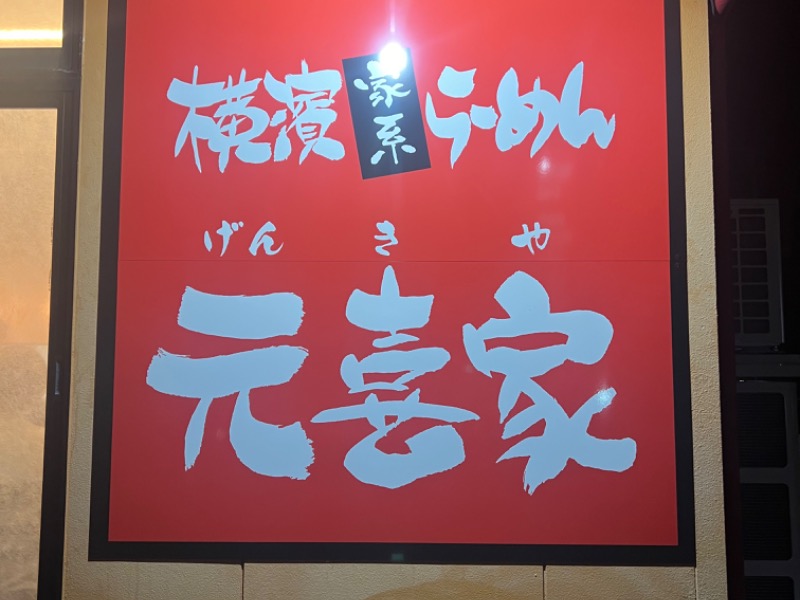 横濱家系らーめん
げんきや
元喜家